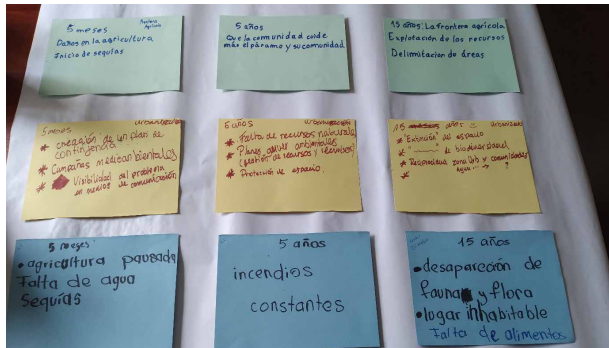 5 meses
Frontera
Agrícola
Daños en la agricultura
Inicio de sequias
5 años
Que la comunidad cuide
más el páramo y su comunidad
15 años: La frontera agricola
Explotación de los recursos
Delimitacion de áreas
5 meses urbanización
* creación de un plan de
contingencia
* Campañas medioambientales
* Visibilidad del problema
en medios de comunicación
5 años urbanización
* Falta de recursos naturales
* Planes ambientales
(gestión de recursos y residuos)
* Protección de espacio.
15 años urbanización
* "Extinción" del espacio
* " de biodiversidad
* zona lab y comunidades
*
5 meses
• agricultura pausada
Falta de agua
Sequías
5 años
incendios
constantes
15 años
• desaparcción de
fauna y flora
• lugar inhabitable
Falta de alimentos